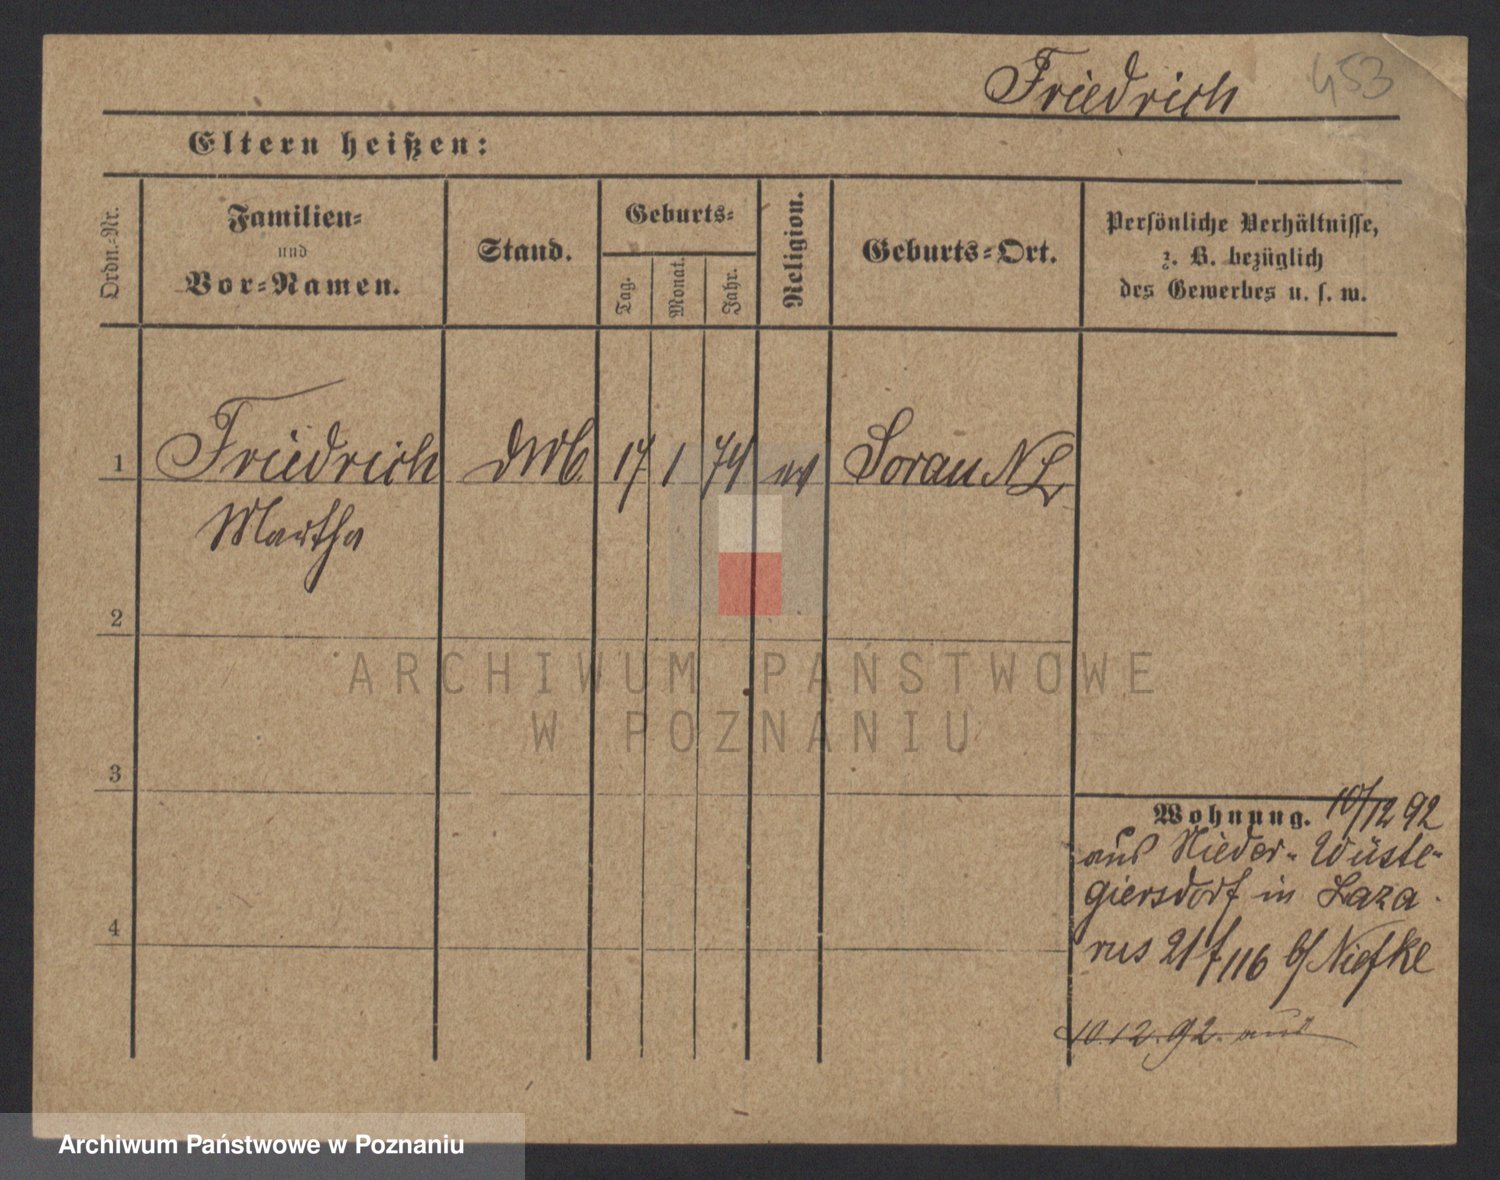 Friedrich 453
Eltern heißen:
Ordn.-Nr.
Familien-
und
Vor-Namen.
Stand.
Geburts-
Tag.
Monat.
Jahr.
Religion.
Geburts-Ort.
Persönliche Verhältnisse,
z. B. bezüglich
des Gewerbes u. s. w.
1 Friedrich 17 1 74 ev Sorau N L
Martha
2
3
4
Wohnung. 10/12 92
aus Nieder-Wüste-
giersdorf in Laza-
rus 21/116 b/ Niefke
10.12.92. aus
ARCHIWUM PAŃSTWOWE
W POZNANIU
Archiwum Państwowe w Poznaniu